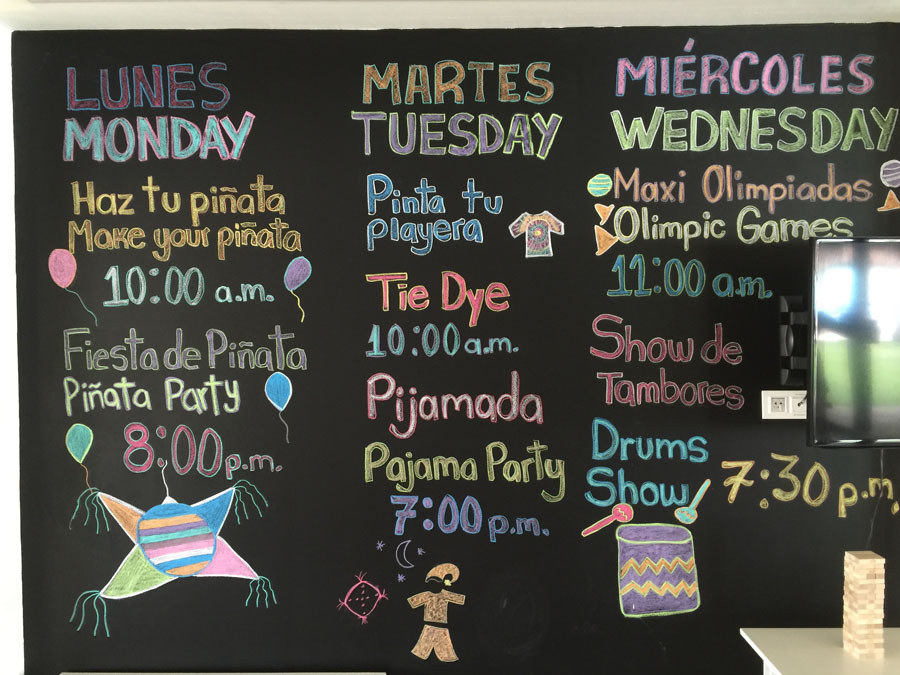 LUNES
MONDAY
Haz tu piñata
Make your piñata
10:00 a.m.
Fiesta de Piñata
Piñata Party
8:00 p.m.
MARTES
TUESDAY
Pinta tu
playera
Tie Dye
10:00 a.m.
Pijamada
Pajama Party
7:00 p.m.
MIÉRCOLES
WEDNESDAY
Maxi Olimpiadas
Olimpic Games
11:00 a.m.
Show de
Tambores
Drums
Show 7:30 p.m.